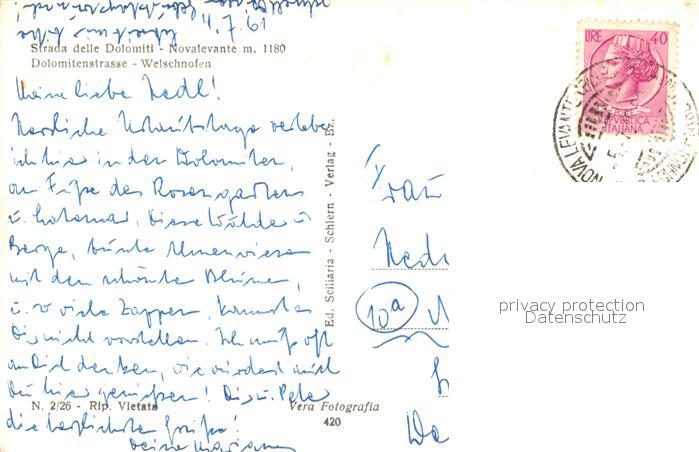 11.7.61
Strada delle Dolomiti - Novalevante m. 1180
Dolomitenstrasse - Welschnofen
Meine liebe Hedl!
Herrliche Urlaubstage verlebe
ich hier in den Dolomiten,
am Fuße des Rosengartens
u. Latemar. Diese Wälder u.
Berge, bunte Almwiesen
mit den schönsten Blumen,
u. so viele Zapfen, kannst
Du nicht vorstellen. Ich muß oft
an Dich denken, wie würdest auch
Du hier genießen! Dir u. Peter
die herzlichsten Grüße!
Deine Mariann
N. 2/26 - Rip. Vietata
Vera Fotografia
420
Ed. Sciliaria - Schlern - Verlag - Bz.
LIRE 40
REPVBBLICA
ITALIANA
NOVA LEVANTE
Frau
Hedi
10a
privacy protection
Datenschutz